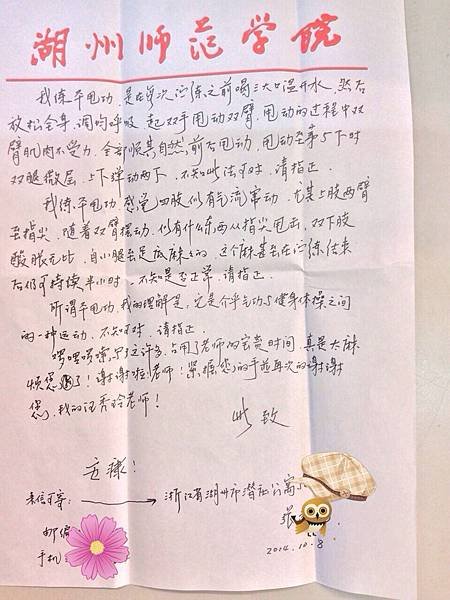 湖州师范学院
我练平甩功,是在每次晨练之前喝三大口温开水,然后
放松全身,调均呼吸,起双手甩动双臂,甩动的过程中双
臂肌肉不受力,全部顺其自然,前后甩动,甩动至第5下时
双腿微屈,上下弹动两下,不知此法可对,请指正。
我练平甩功,感觉四肢似有气流窜动,尤其上肢两臂
至指尖,随着双臂摆动,似有什么东西从指尖甩出,双下肢
酸胀无比,自小腿至足底麻麻的,这个麻甚至在晨练结束
后仍可持续半小时,不知是否正常,请指正。
所谓平甩功,我的理解是,它是介乎气功与健身体操之间
的一种运动,不知可对,请指正。
啰啰嗦嗦,写了这许多,占用了老师的宝贵时间,真是太麻
烦您了!谢谢啦,老师!紧握您的手並再次的谢谢
您,我的汪秀玲老师!
此致
立球!
来信可寄: 浙江省湖州市潜社公寓
邮编
手机: 张
2014.10.8